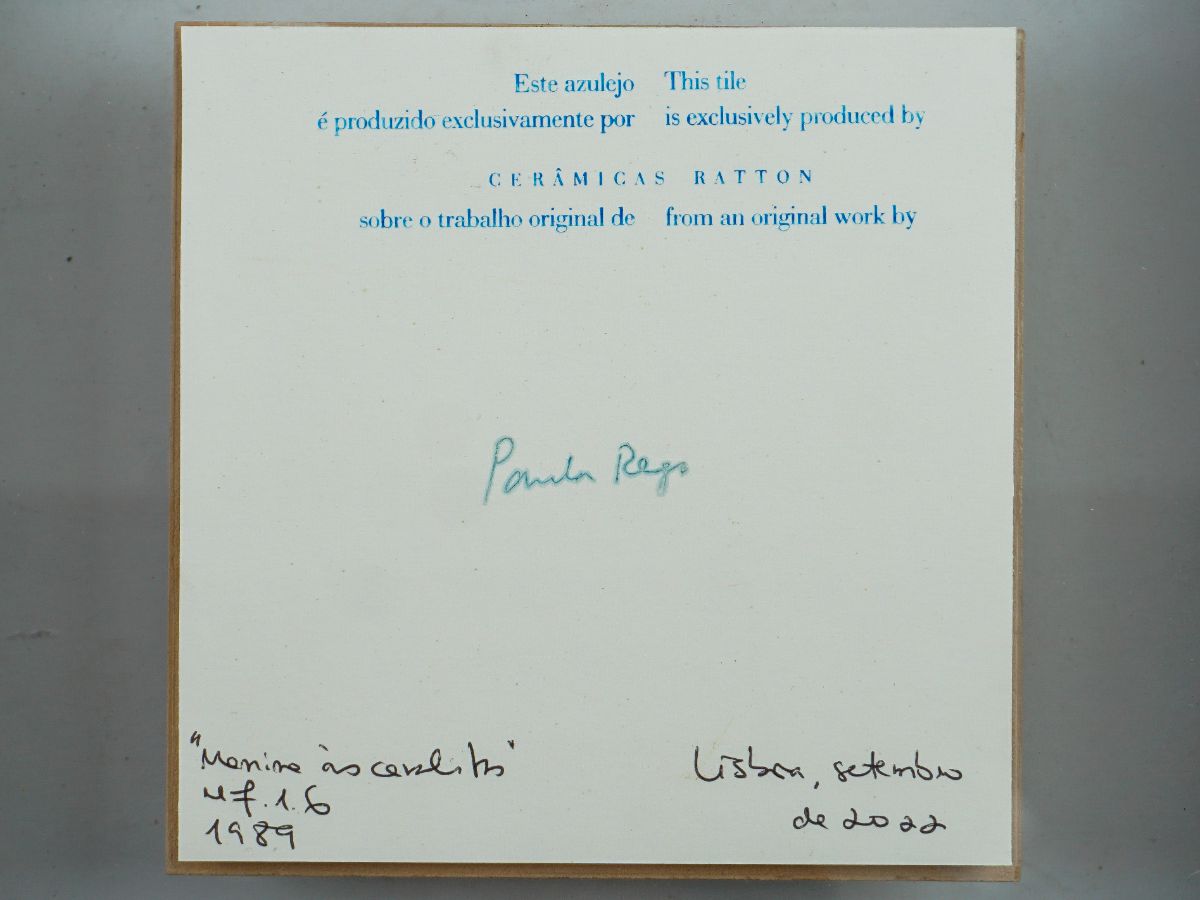 Este azulejo
é produzido exclusivamente por
This tile
is exclusively produced by
CERÂMICAS RATTON
sobre o trabalho original de
from an original work by
Paula Rego
"Menina às cavalitas"
Mf. 1.6
1989
Lisboa, setembro
de 2022